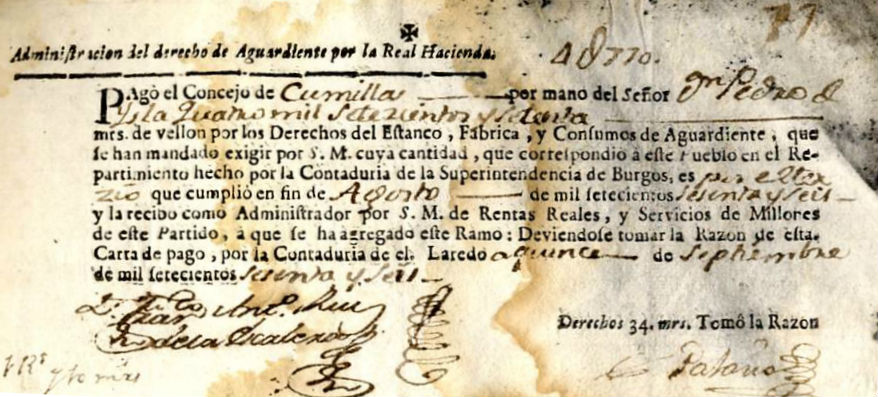 77
✠
Administracion del derecho de Aguardiente por la Real Hacienda.
4 U 770.
PAgó el Concejo de Cumillas por mano del Señor Dn Pedro de
Isla Quatro mil setezientos y setenta
mrs. de vellon por los Derechos del Estanco, Fabrica, y Consumos de Aguardiente, que
se han mandado exigir por S. M. cuya cantidad, que correspondió a este Pueblo en el Re-
partimiento hecho por la Contaduria de la Superintendencia de Burgos, es por el ter-
zio que cumplió en fin de Agosto de mil setecientos sesenta y seis
y la recibo como Administrador por S. M. de Rentas Reales, y Servicios de Millones
de este Partido, à que se ha agregado este Ramo: Deviendose tomar la Razon de esta
Carta de pago, por la Contaduria de el. Laredo a quince de Septiembre
de mil setecientos sesenta y seis
Juan Anto. Ruiz
de la Escalera
Derechos 34. mrs. Tomô la Razon